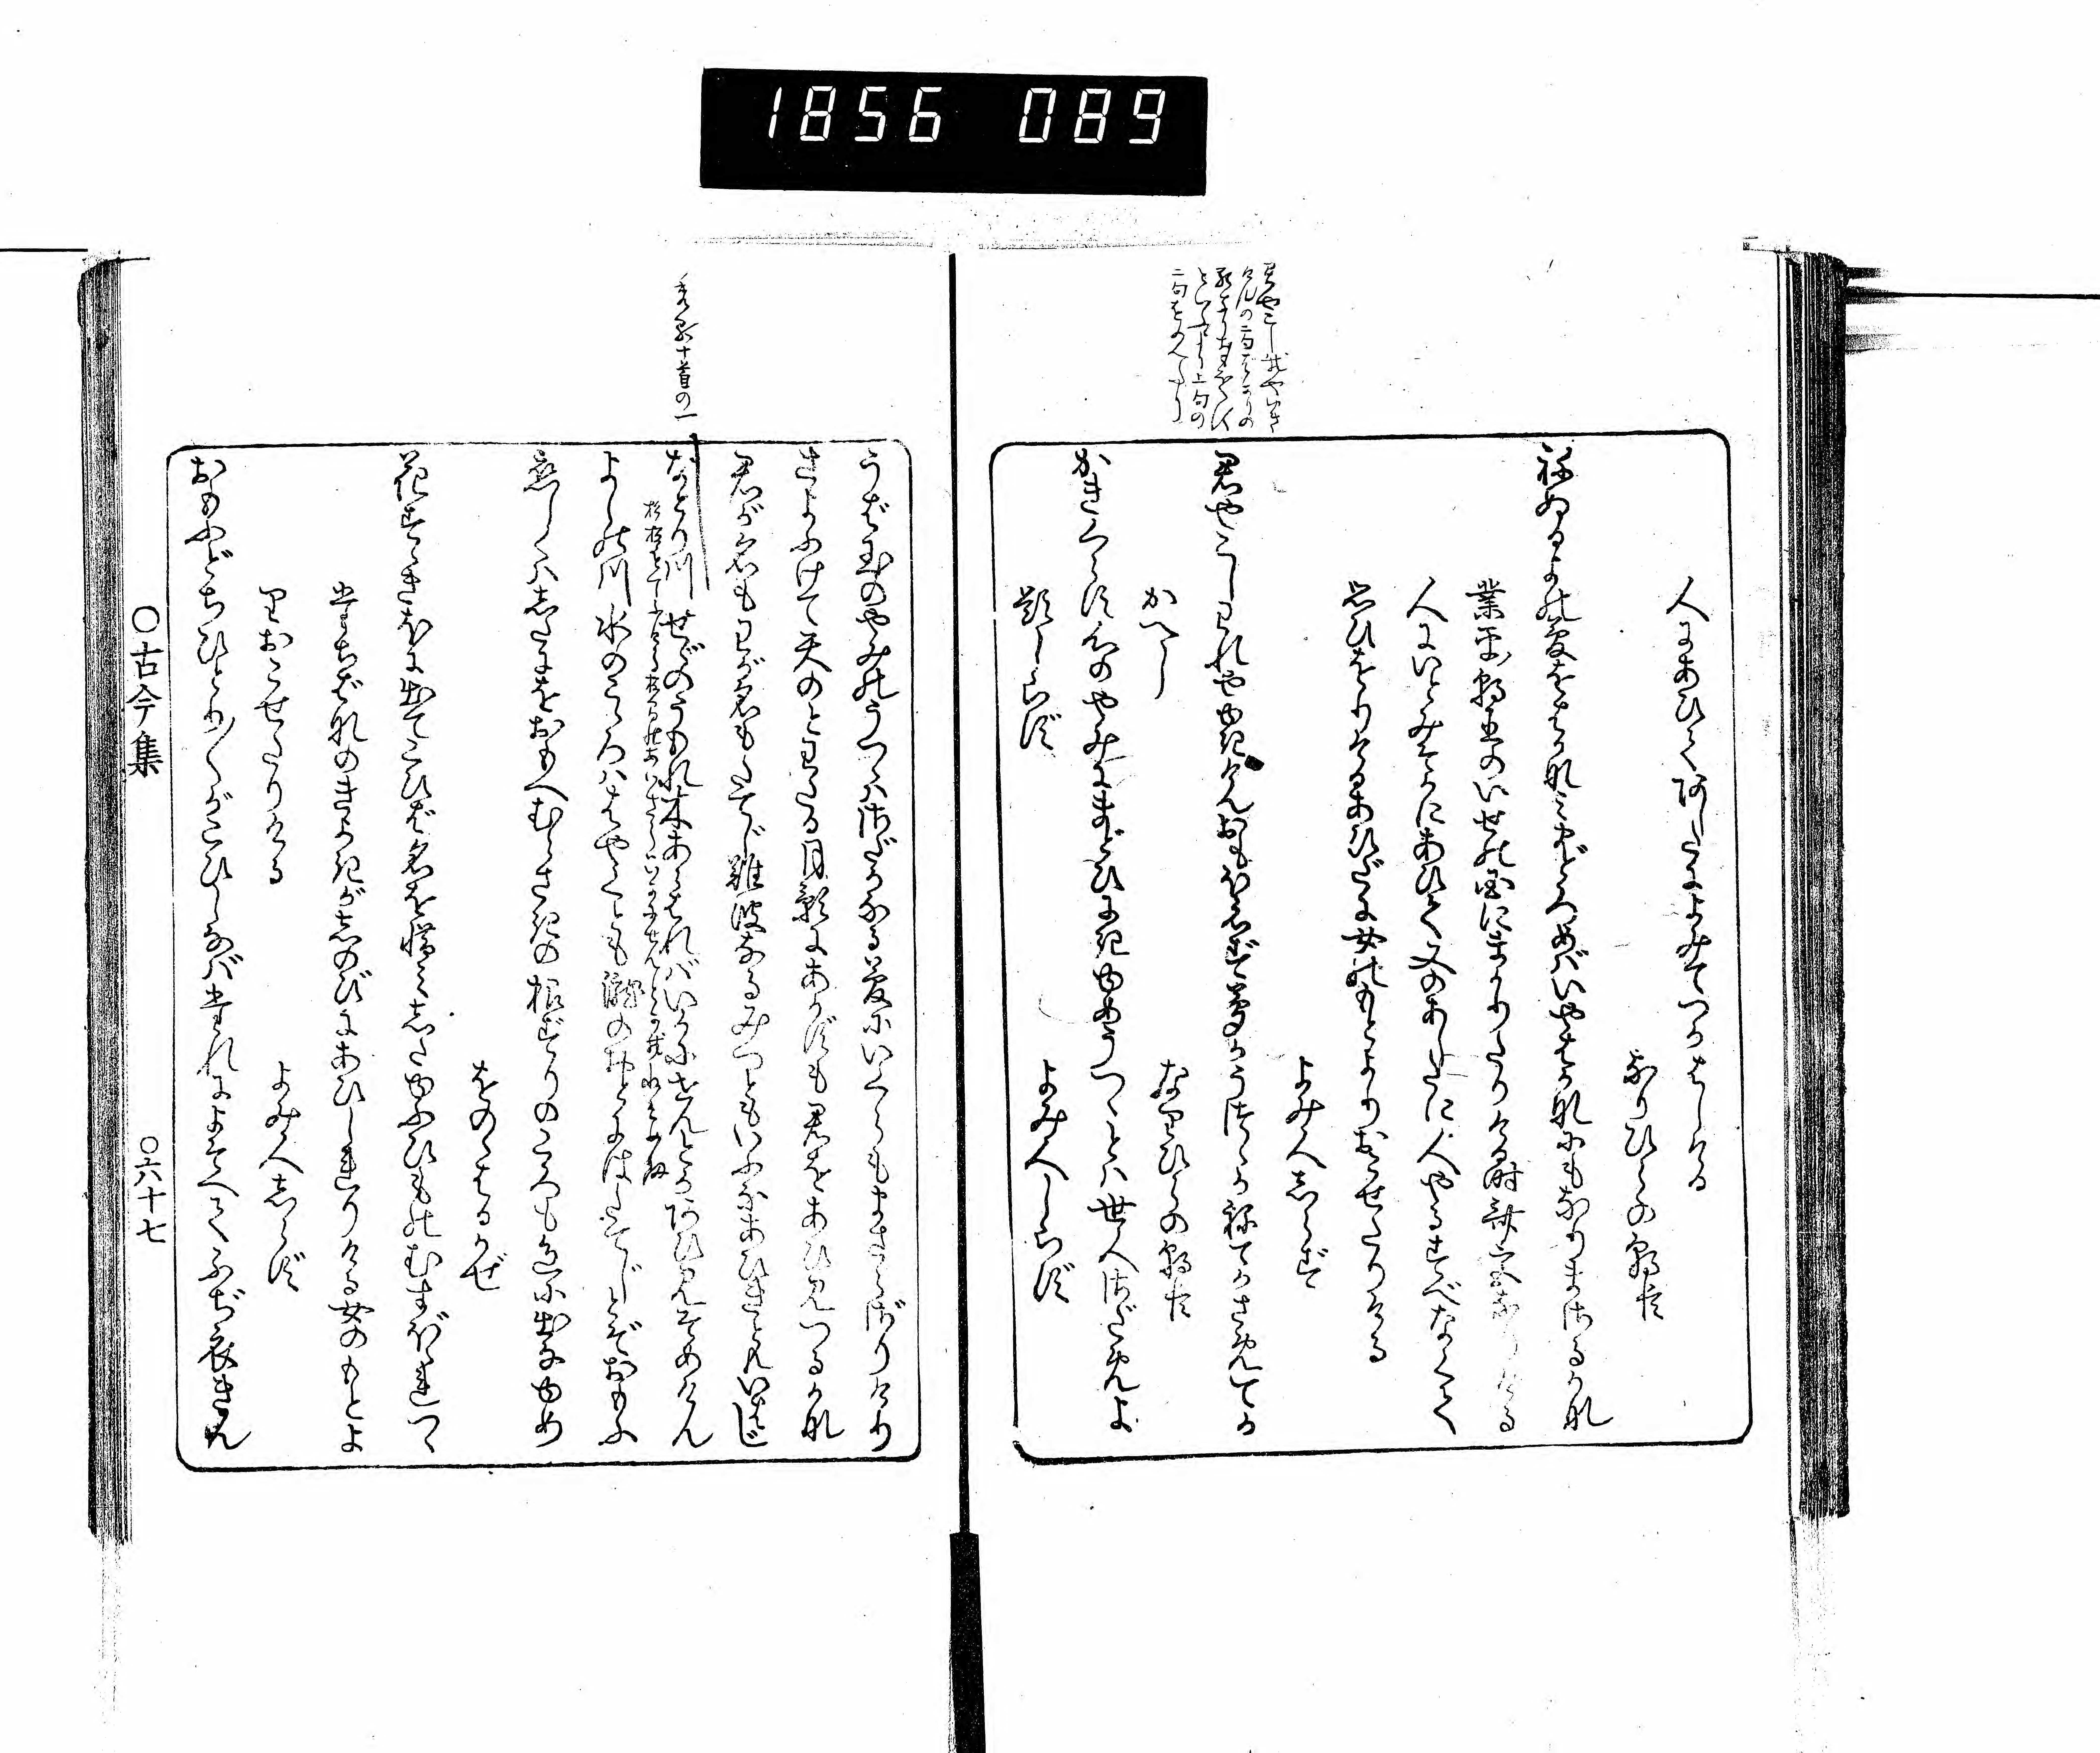 1856 089
人にあひてあしたによみてつかはしける
なりひらの朝臣
ねぬるよの夢をはかなみまどろめばいやはかなにもなりまさるかな
業平朝臣のいせの国にまかりたりける時斎宮なりける
人にいとみそかにあひて又のあしたに人やるすべなくて
思ひをりけるあひだに女のもとよりおこせたりける
よみ人しらず
君やこしわれやゆきけんおもほえず夢かうつゝかねてかさめてか
かへし
なりひらの朝臣
かきくらす心のやみにまどひにきゆめうつゝとは世人さだめよ
題しらず
よみ人しらず
うば玉のやみのうつゝはさだかなる夢にいくらもまさらざりけり
さよふけて天のとわたる月影にあかずも君をあひ見つるかな
君が名もわが名もたてじ難波なるみつともいふなあひきともいはじ
なとり川せゞのうもれ木あらはればいかにせんとかあひ見そめけん
よしの川水のこゝろははやくとも瀧のおとにはたてじとぞおもふ
恋しくはしたにをおもへむらさきの根ずりのころも色に出なゆめ
をのゝはるかぜ
花すゝきほに出てこひば名を惜みしたゆふひものむすぼゝれつゝ
たちばなのきよきがしのびにあひしれりける女のもとよ
りおこせたりける
よみ人しらず
おもふどちひとり／＼がこひしなばたれによそへてふぢ衣きん
○古今集
○六十七